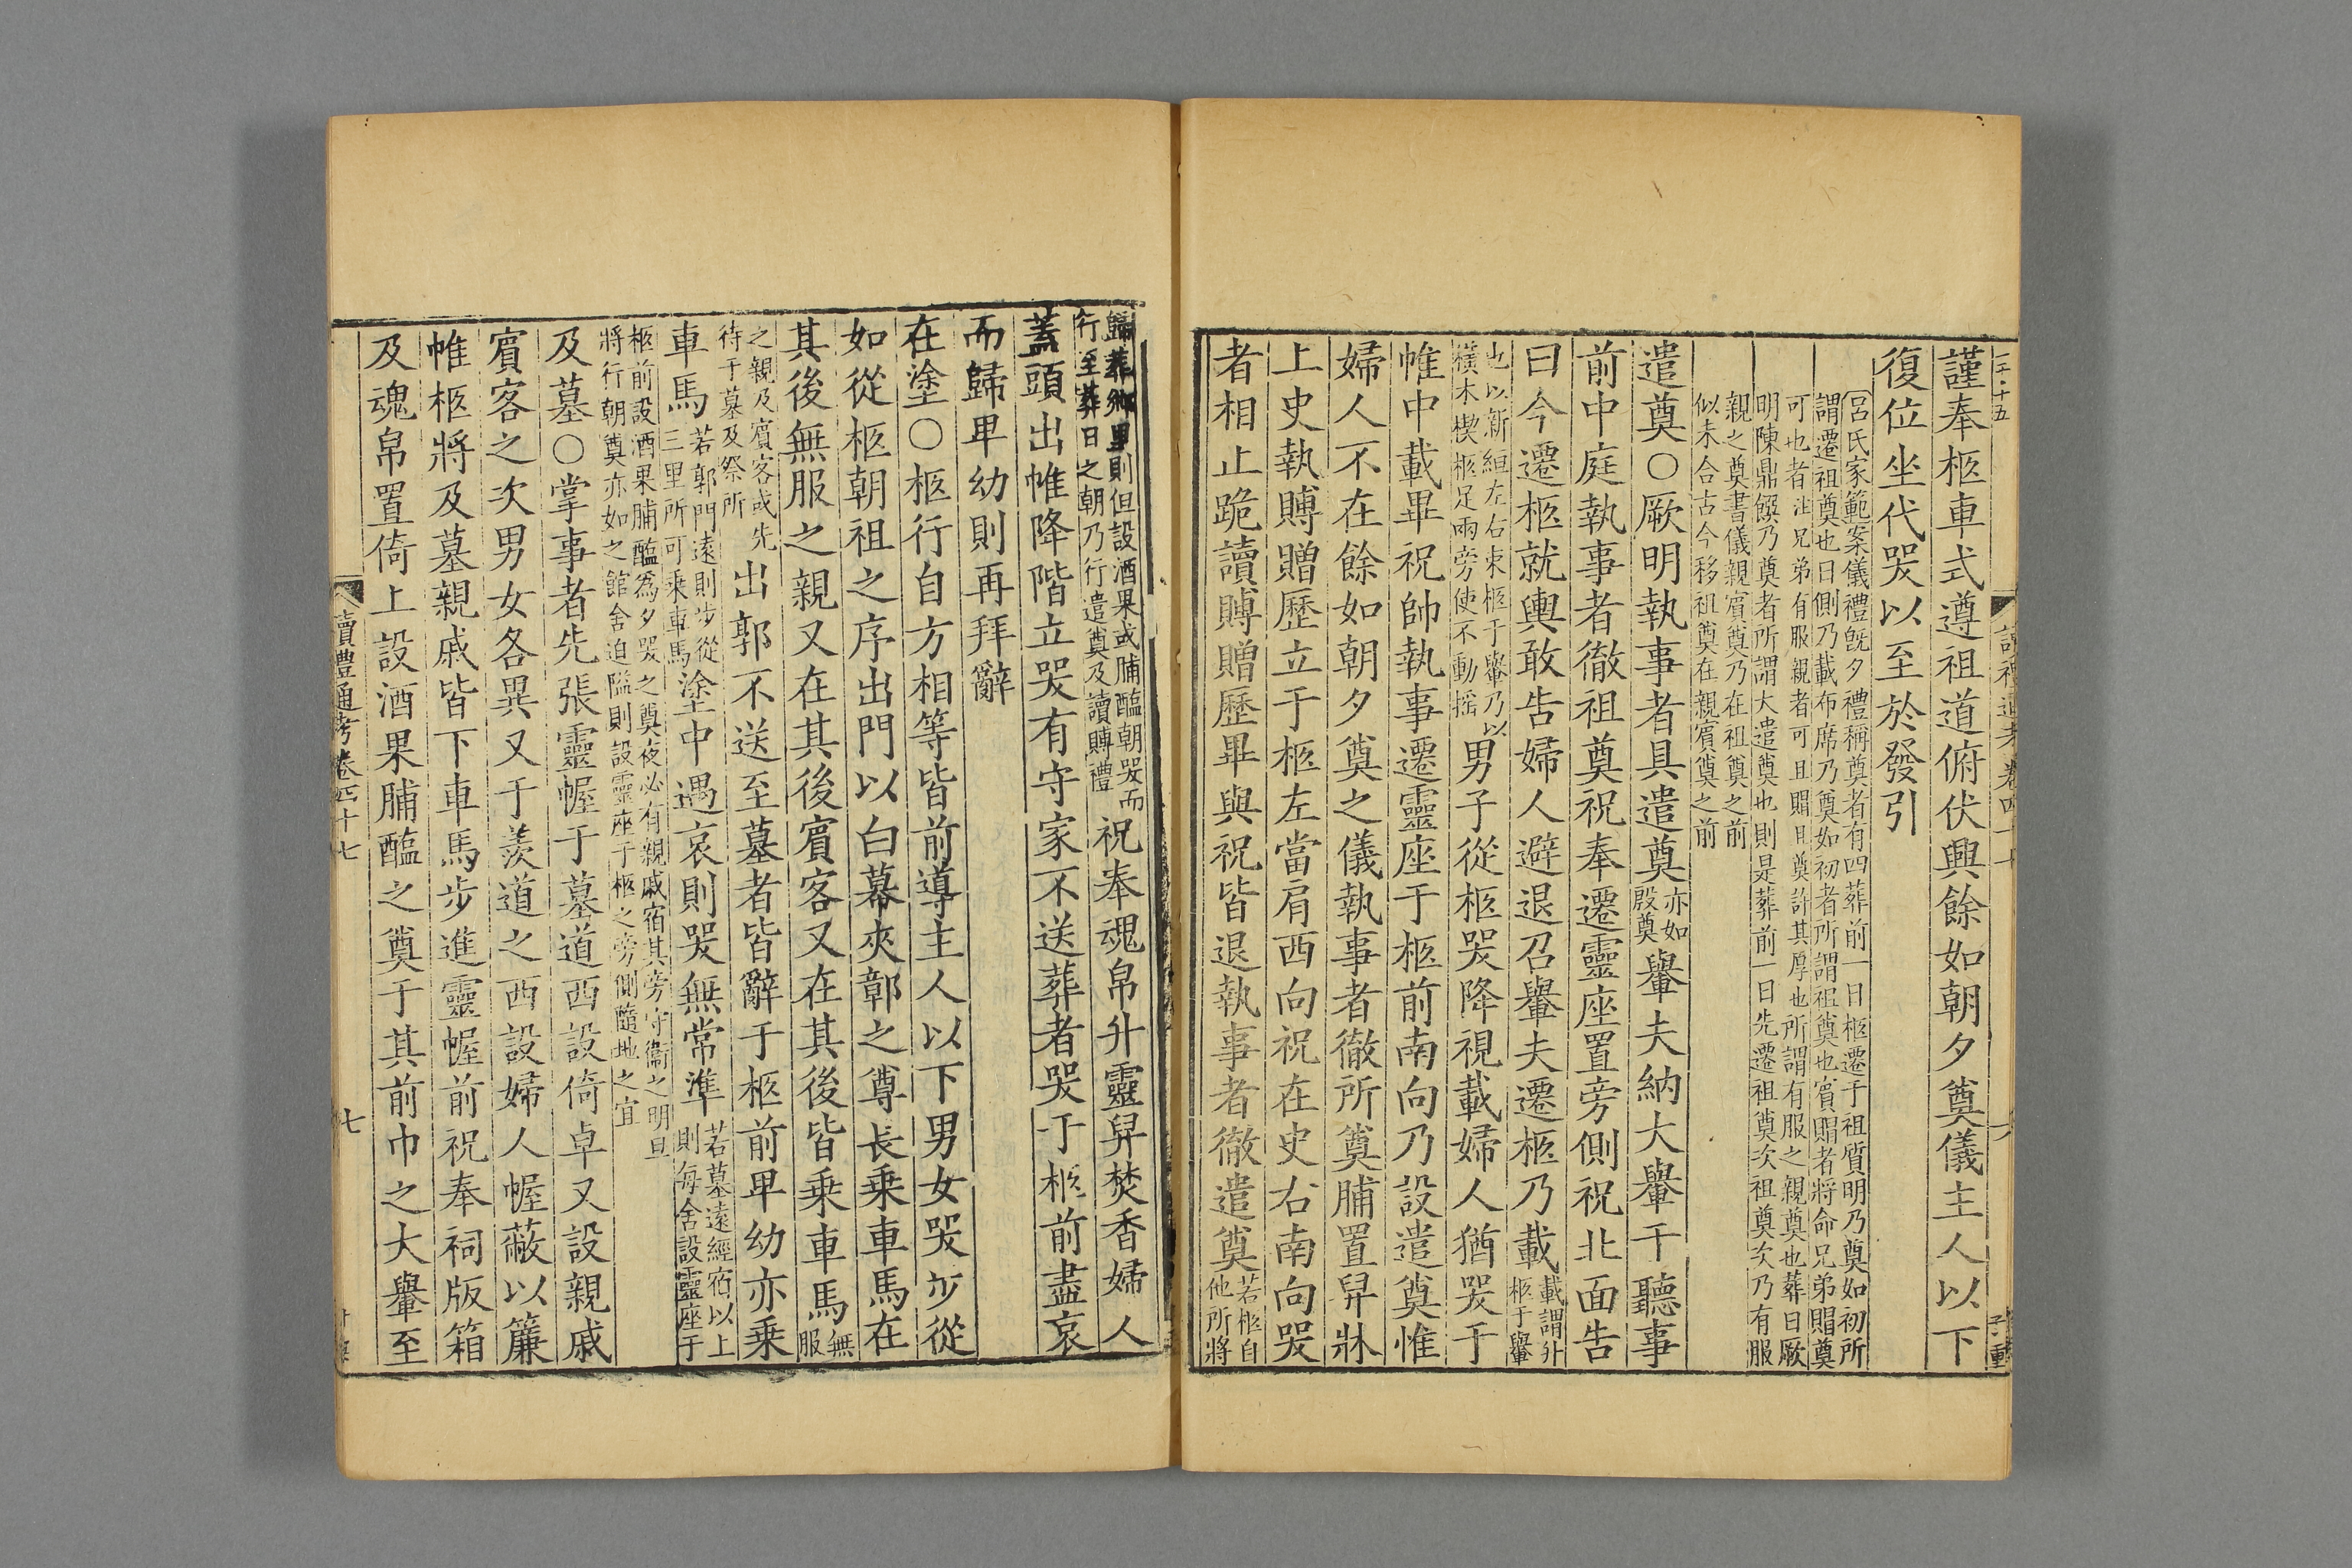 謹奉柩車式遵祖道俯伏興餘如朝夕奠儀主人以下
復位坐代哭以至於發引
呂氏家範案儀禮旣夕禮稱奠者有四葬前一日柩遷于祖質明乃奠如初所
謂遷祖奠也日側乃載布席乃奠如初者所謂祖奠也賓賵者將命兄弟賵奠
可也者注兄弟有服親者可且賵且奠許其厚也所謂有服之親奠也葬日厥
明陳鼎饌乃奠者所謂大遣奠也則是葬前一日先遷祖奠次祖奠次乃有服
親之奠書儀親賓奠乃在祖奠之前
似未合古今移祖奠在親賓奠之前
遣奠○厥明執事者具遣奠亦如殷奠轝夫納大轝于聽事
前中庭執事者徹祖奠祝奉遷靈座置旁側祝北面告
曰今遷柩就輿敢告婦人避退召轝夫遷柩乃載載謂升柩于轝
也以新絙左右束柩于轝乃以橫木楔柩足兩旁使不動搖男子從柩哭降視載婦人猶哭于
帷中載畢祝帥執事遷靈座于柩前南向乃設遣奠惟
婦人不在餘如朝夕奠之儀執事者徹所奠脯置舁牀
上史執賻贈歷立于柩左當肩西向祝在史右南向哭
者相止跪讀賻贈歷畢與祝皆退執事者徹遣奠若柩自他所將
歸葬鄉里則但設酒果或脯醢朝哭而行至葬日之朝乃行遣奠及讀賻禮祝奉魂帛升靈舁焚香婦人
蓋頭出帷降階立哭有守家不送葬者哭于柩前盡哀
而歸卑幼則再拜辭
在塗○柩行自方相等皆前導主人以下男女哭步從
如從柩朝祖之序出門以白幕夾鄣之尊長乘車馬在
其後無服之親又在其後賓客又在其後皆乘車馬無服
之親及賓客或先待于墓及祭所出郭不送至墓者皆辭于柩前卑幼亦乘
車馬若郭門遠則步從三里所可乘車馬塗中遇哀則哭無常準若墓遠經宿以上則每舍設靈座于
柩前設酒果脯醢為夕哭之奠夜必有親戚宿其旁守衞之明旦
將行朝奠亦如之館舍迫隘則設靈座于柩之旁側隨地之宜
及墓○掌事者先張靈幄于墓道西設倚卓又設親戚
賓客之次男女各異又于羨道之西設婦人幄蔽以簾
帷柩將及墓親戚皆下車馬步進靈幄前祝奉祠版箱
及魂帛置倚上設酒果脯醢之奠于其前巾之大轝至
讀禮通考卷四十七
七